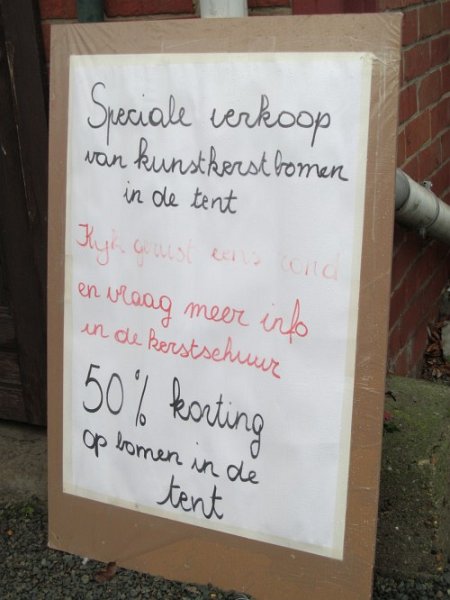 Speciale verkoop
van kunstkerstbomen
in de tent
Kijk gerust eens rond
en vraag meer info
in de kerstschuur
50% korting
op bomen in de
tent